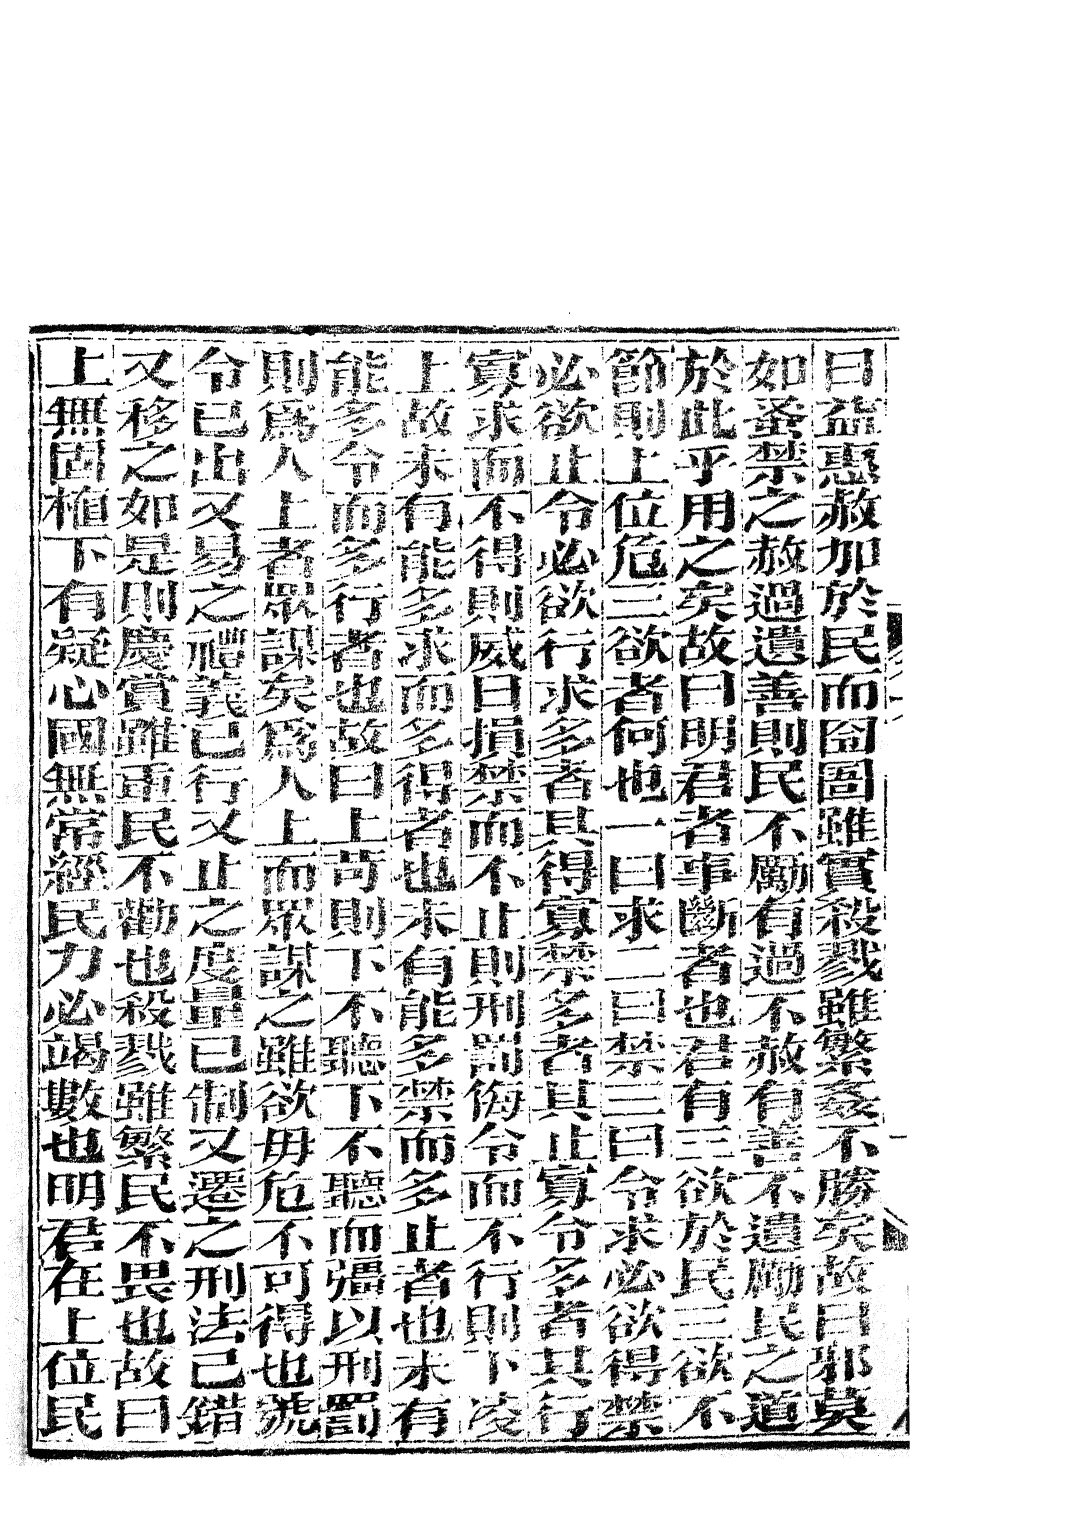 曰益惠赦加於民而囹圄雖實殺戮雖繁姦不勝矣故曰邪莫
如蚤禁之赦過遺善則民不勵有過不赦有善不遺勵民之道
於此乎用之矣故曰明君者事斷者也君有三欲於民三欲不
節則上位危三欲者何也一曰求二曰禁三曰令求必欲得禁
必欲止令必欲行求多者其得寡禁多者其止寡令多者其行
寡求而不得則威日損禁而不止則刑罰侮令而不行則下凌
上故未有能多求而多得者也未有能多禁而多止者也未有
能多令而多行者也故曰上苛則下不聽下不聽而彊以刑罰
則爲人上者眾謀矣爲人上而眾謀之雖欲毋危不可得也號
令已出又易之禮義已行又止之度量已制又遷之刑法已錯
又移之如是則慶賞雖重民不勸也殺戮雖繁民不畏也故曰
上無固植下有疑心國無常經民力必竭數也明君在上位民